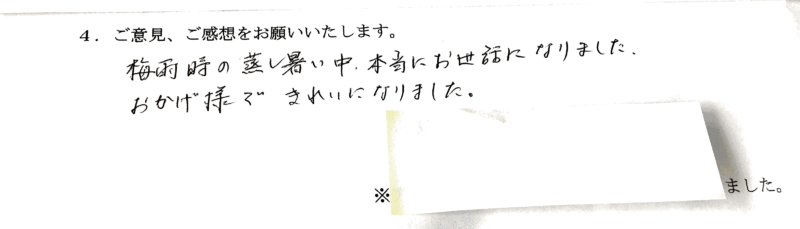 4．ご意見、ご感想をお願いいたします。
梅雨時の蒸し暑い中、本当にお世話になりました。
おかげ様で きれいになりました。
※
ました。